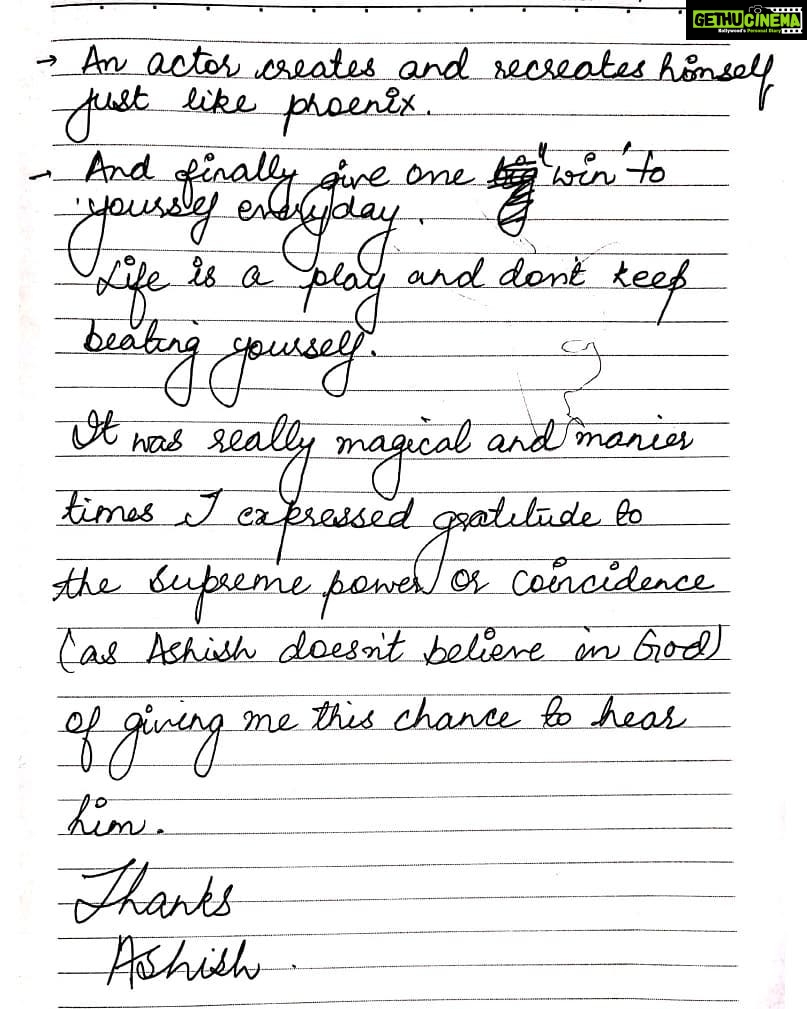 GETHU CINEMA
Kollywood's Personal Diary
→ An actor creates and recreates himself
just like phoenix.
→ And finally give one "win" to
yourself everyday.
Life is a play and don't keep
beating yourself.
It was really magical and manier
times I expressed gratitude to
the supreme power or coincidence
(as Ashish doesn't believe in God)
of giving me this chance to hear
him.
Thanks
Ashish.